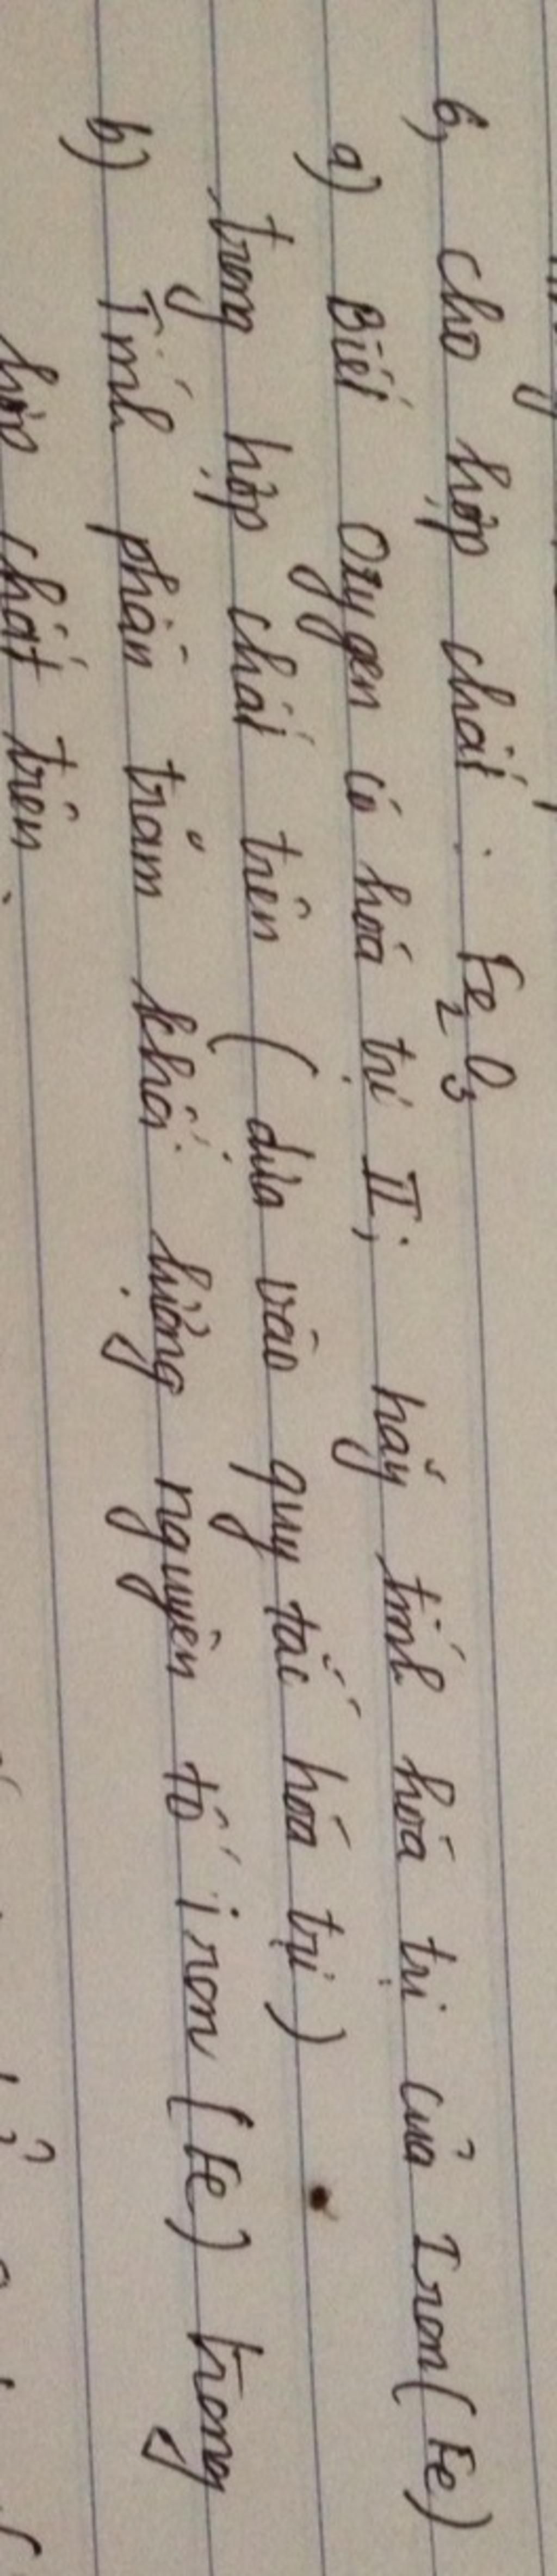 6, cho hợp chất: Fe2O3
a) Biết Oxygen có hoá trị II; hãy tính hoá trị của Iron (Fe)
trong hợp chất trên (dựa vào quy tắc hóa trị)
b) Tính phần trăm khối lượng nguyên tố iron (Fe) trong
hợp chất trên.